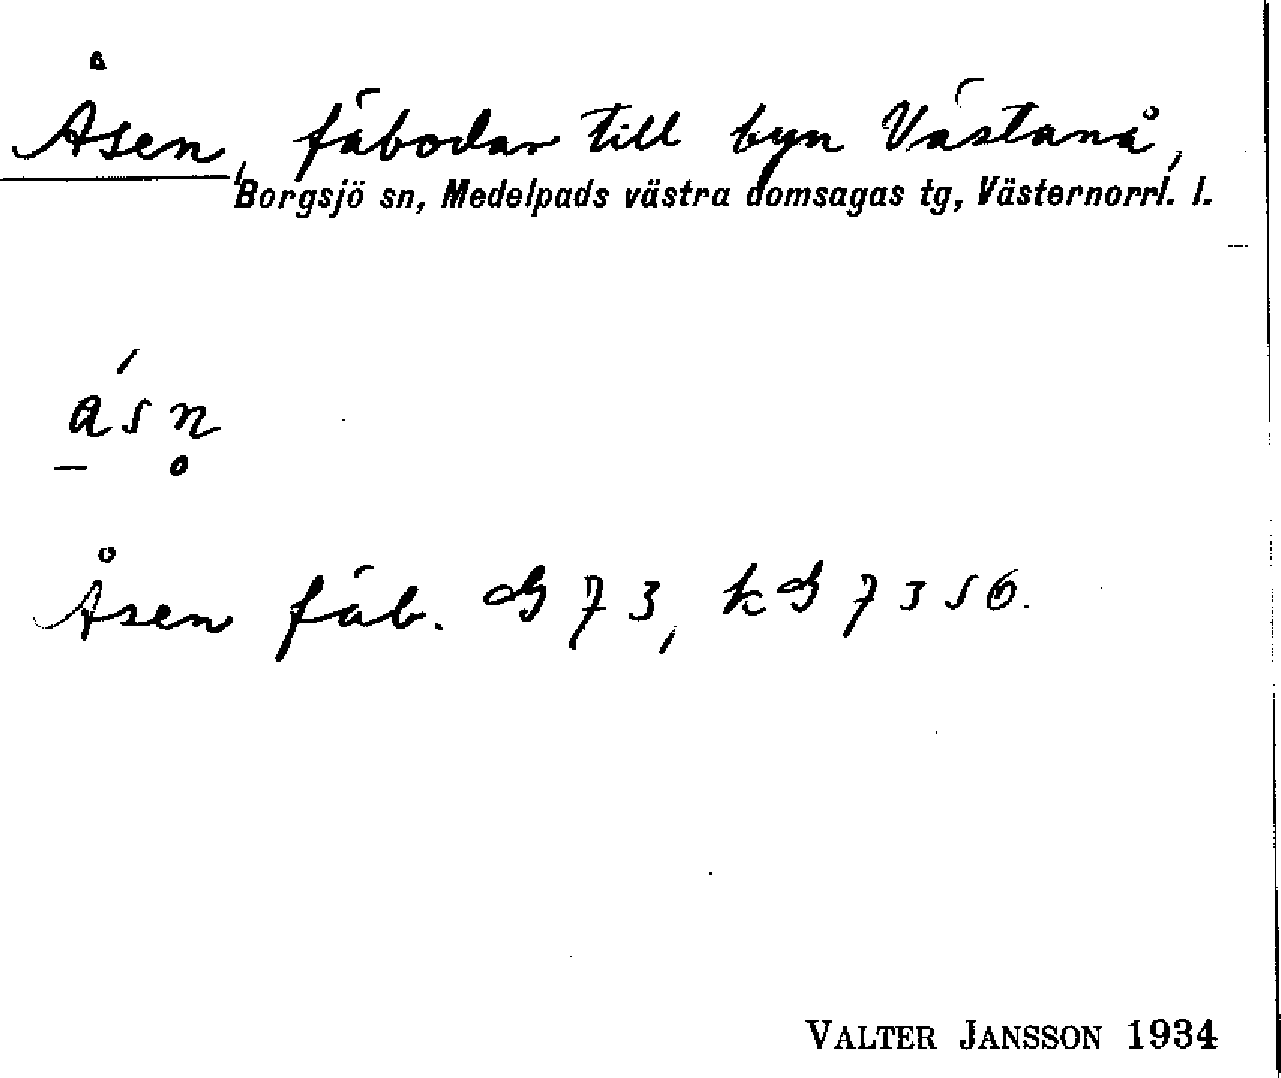 Åsen, fäbodar till byn Västanå,
Borgsjö sn, Medelpads västra domsagas tg, Västernorrl. l.
á̱sn̥
Åsen fäb. G 73, kG 7356.
VALTER JANSSON 1934